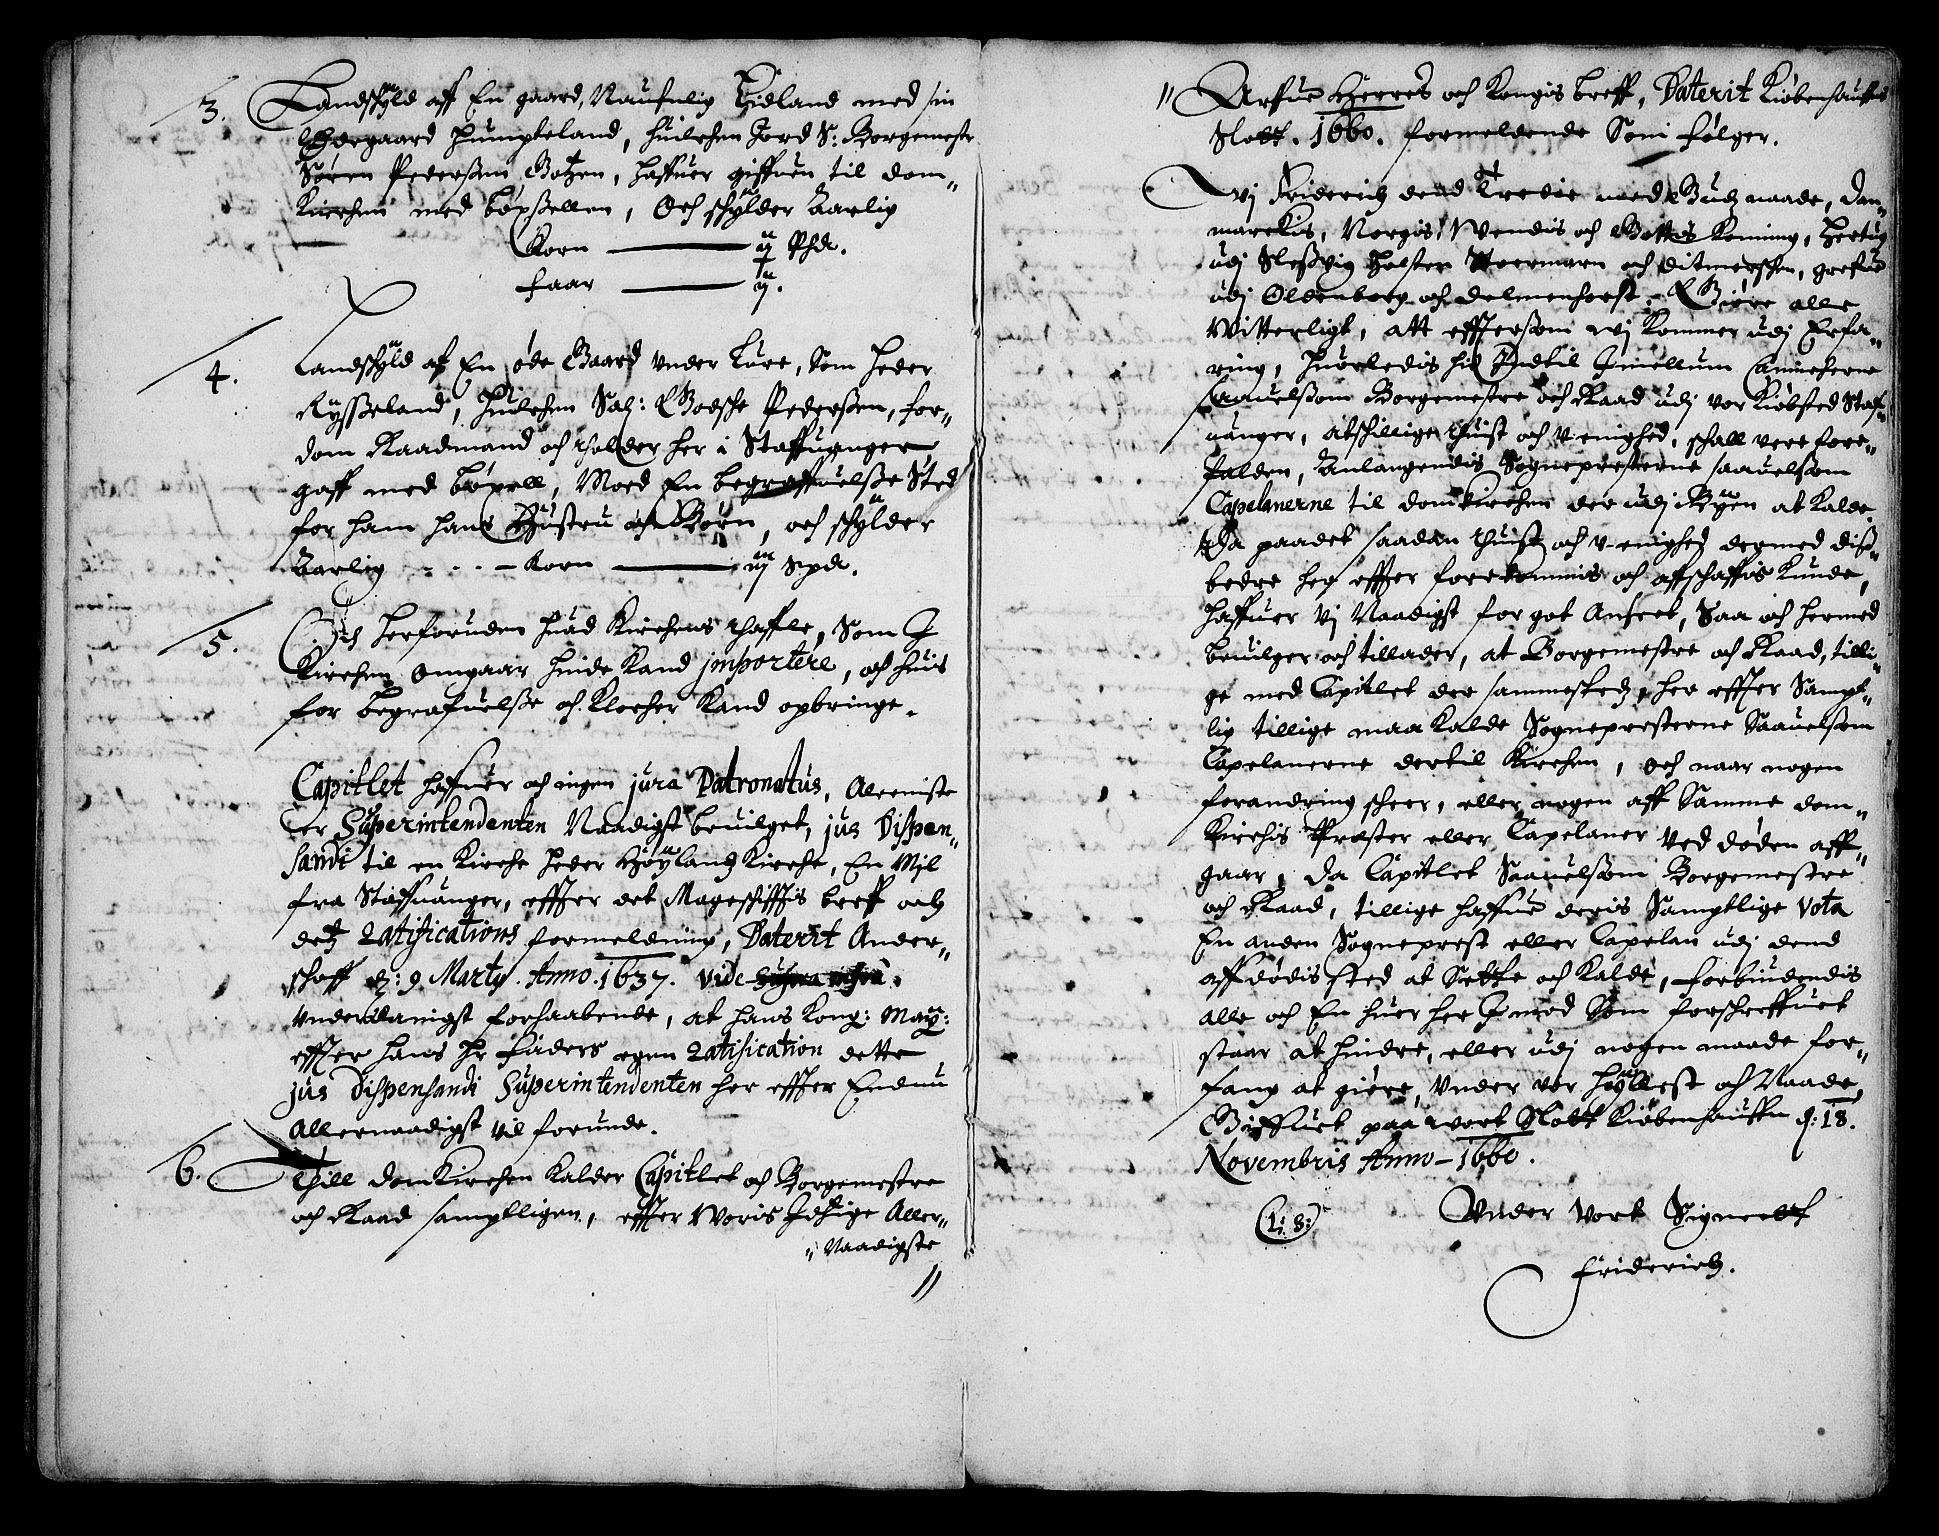 3. Landschÿld aff En gaard, Naufnlig Tidland med sin
Ødegaard Humpteland, huilchen Jord S: Borgemestr
Søren Pederßøn Gotzen, haffuer giffuen til dom„
Kirchen med bøxßellen, Och schÿlder Aarlig
Korn ——— ij Phd.
Faar ——— ij.
4. Landschÿld af En øde Gaard vnder Lure, Som heder
Rÿsseland, huilchen Sal: Godsche Pederßen, for„
dom Raadmand och tholder her i Staffuanger
gaff med bøxell, Moed En begraffuelße Sted
for ham hans Hustru och Børn, och schÿlder
Aarlig - - - - Korn ——— iij Spd.
5. Och herforuden huad Kirchens thaffle, Som I
Kirchen omgaar hinde Kand jmportere, och huis
for begrafuelße och Klocher Kand opbringe.
Capitlet haffuer och ingen jura Patronatus, Aleeniste
er Superintendenten Naadigst beuilget, jus Dispen„
sandi til en Kirche heder Høÿland Kirche, En Mjl
fra Staffuanger, effter det Mageschifftis breff och
detz Ratifications formelding, Daterit Ander„
schoff d: 9 Martij. Anno. 1637. vide
vnderdanigst forhaabende, at hans Kong: Maÿ:
effter hans Hr Faders egen Ratification dette
jus Dispensandi Superintendenten her effter Endnu
Allernaadigst vil forunde.
6. Thill domKirchen Kalder Capitlet och Borgemestre
och Raad samptligen, effter Woris Idzige Aller„
„Naadigste
//
// Arfue Herres och Kongis breff, Daterit Kiøbenhauffns
Slott. 1660. formeldende Som følger.
Wj Friderich dend Tredie med Gudz naade, Dan„
marckis, Norgis, Wendis och Gottis Koning, Hertug
udj Sleßvig Holsten Stormarn och Ditmerschen, grefue
udj Oldenborg och Delmenhorst, Giøre alle
Witterligt, att effterßom wj Kommer udj Erfa„
ring, huorledis hid Indtil Imellum Cannicherne
saauelßom Borgemestre och Raad udj vor Kiøbsted Staf„
uanger, atschillige thuist och V-enighed, schall vere fore„
falden, Anlangendis Sognepresterne saauelßom
Capelanerne til domkirchen der udj Bÿen at Kalde,
Da paadet saadan thuist och v-enighed dermed diß„
bedre her effter forekommis och affschaffis Kunde,
haffuer vj Naadigst for got Anseet, Saa och hermed
beuilger och tillader, at Borgemestre och Raad, tilli„
ge med Capitlet der sammestedz, her effter Sampt„
lig tillige maa Kalde Sognepresterne Saauelsom
Capelanerne dertil Kirchen, och naar nogen
forandring scheer, eller nogen aff Samme dom„
Kirchis Præster eller Capelaner ved døden aff„
gaar, da Capitlet Saauelsom Borgemestre
och Raad, tillige haffue deris Samptlige Vota
En anden Sogneprest eller Capelan udj dend
affdødis sted at Sette och Kalde, Forbiudendis
alle och En huer her Imod Som forschreffuet
staar at hindre, eller udj nogen maade for„
fang at giøre, Vnder vor Hÿllest och Naade,
Gifflict paa wort Slott Kiøbenhauffn d: 18.
Novembris Anno - 1660.
(L: S:) Vnder Vort Signeett
Friderich.